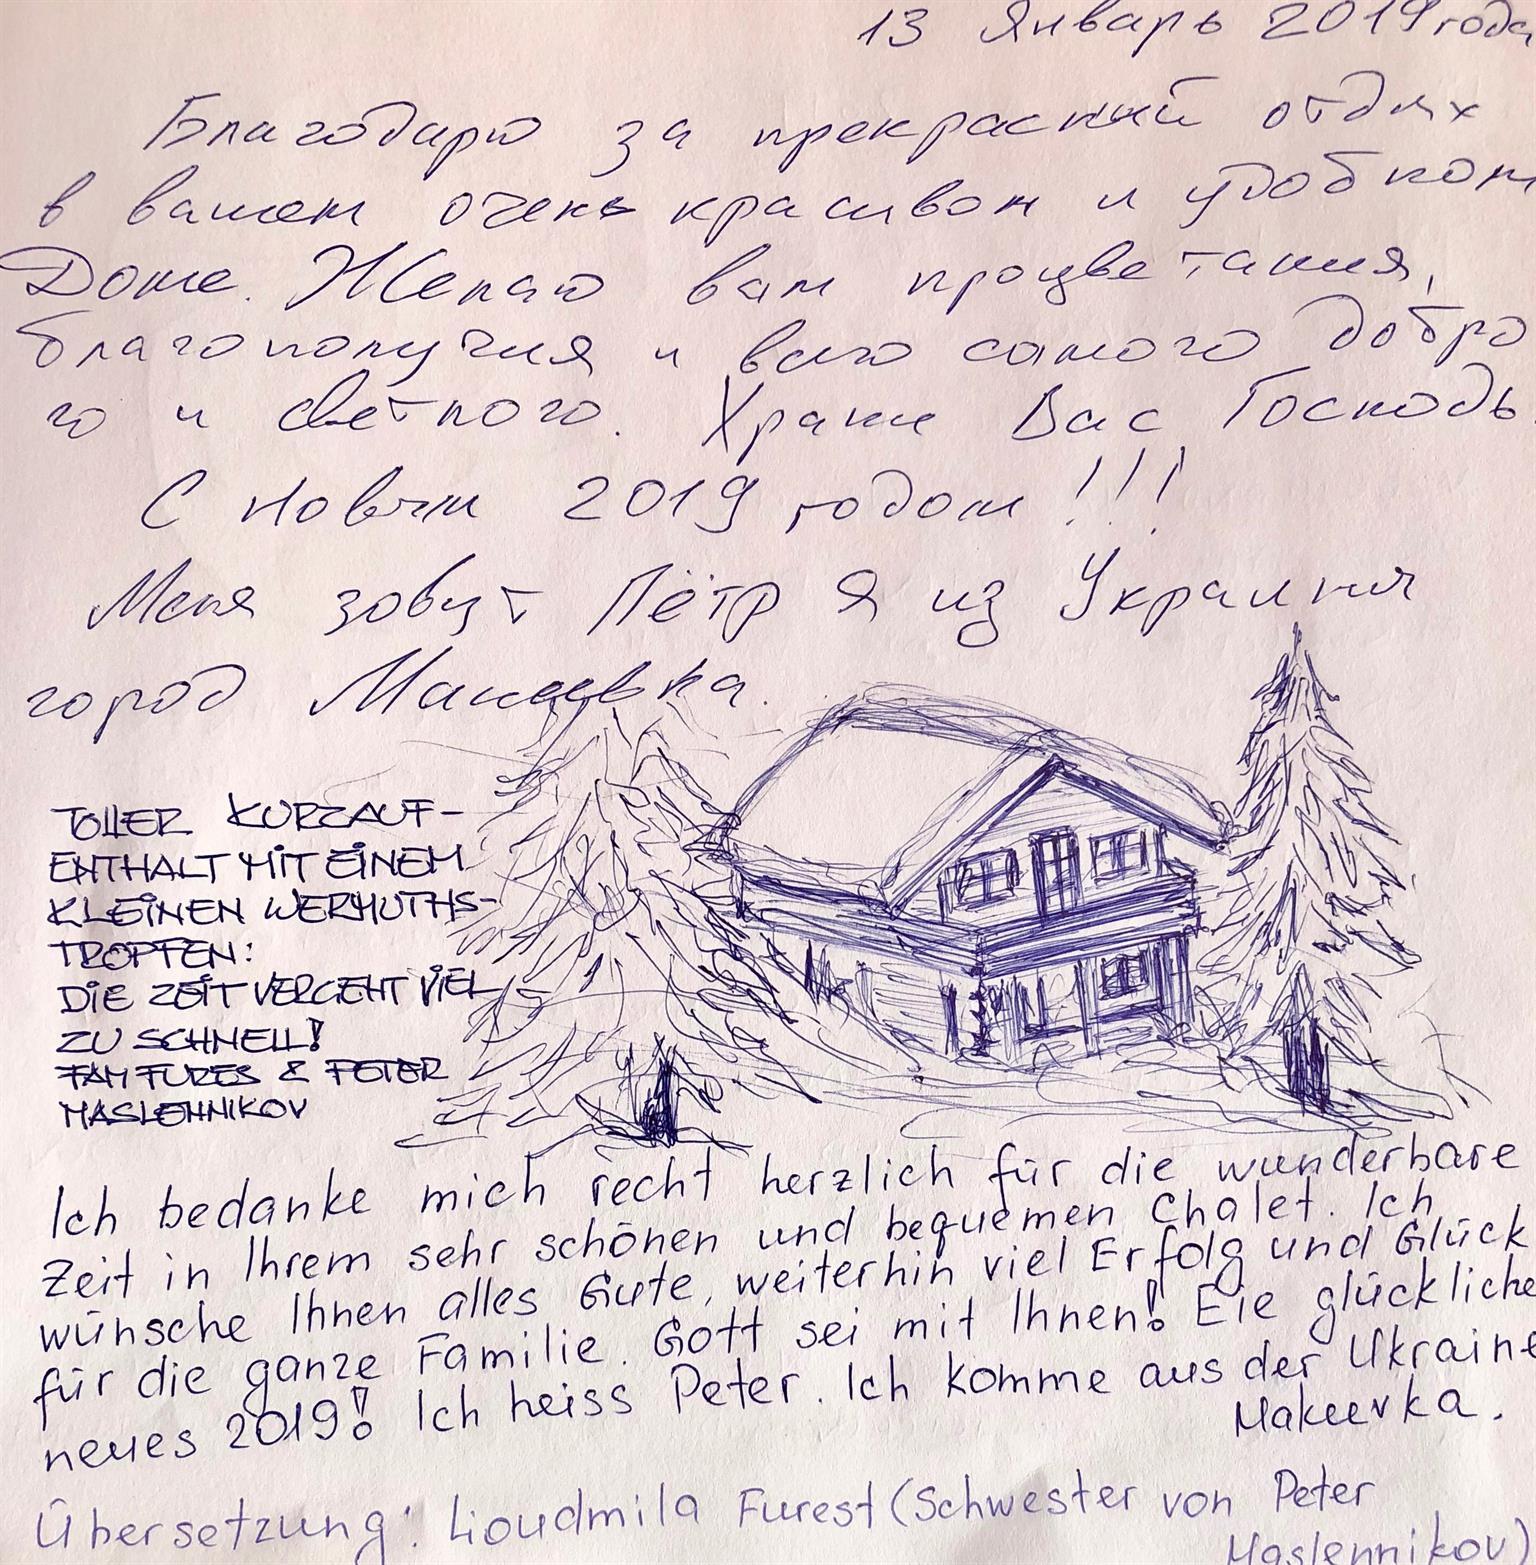 13 Январь 2019 года
Благодарю за прекрасный отдых
в вашем очень красивом и удобном
Доме. Желаю вам процветания,
благополучия и всего самого добро
го и светлого. Храни Вас Господь.
С Новым 2019 годом!!!
Меня зовут Пётр Я из Украины
город Макеевка.
TOLLER KURZAUF-
ENTHALT MIT EINEM
KLEINEN WERMUTHS-
TROPFEN:
DIE ZEIT VERGEHT VIEL
ZU SCHNELL!
FAM FURES & PETER
MASLENNIKOV
Ich bedanke mich recht herzlich für die wunderbare
Zeit in Ihrem sehr schönen und bequemen Chalet. Ich
wünsche Ihnen alles Gute, weiterhin viel Erfolg und Glück
für die ganze Familie. Gott sei mit Ihnen! Eie glückliche
neues 2019! Ich heiss Peter. Ich komme aus der Ukraine
Makeevka.
Übersetzung: Lioudmila Furest (Schwester von Peter
Maslennikov)